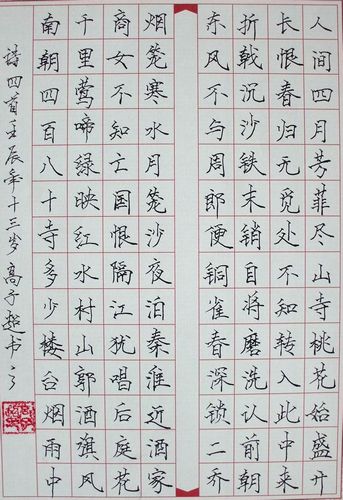 人间四月芳菲尽山寺桃花始盛开
长恨春归无觅处不知转入此中来
折戟沉沙铁未销自将磨洗认前朝
东风不与周郎便铜雀春深锁二乔
烟笼寒水月笼沙夜泊秦淮近酒家
商女不知亡国恨隔江犹唱后庭花
千里莺啼绿映红水村山郭酒旗风
南朝四百八十寺多少楼台烟雨中
诗四首壬辰年十三岁高子超书之